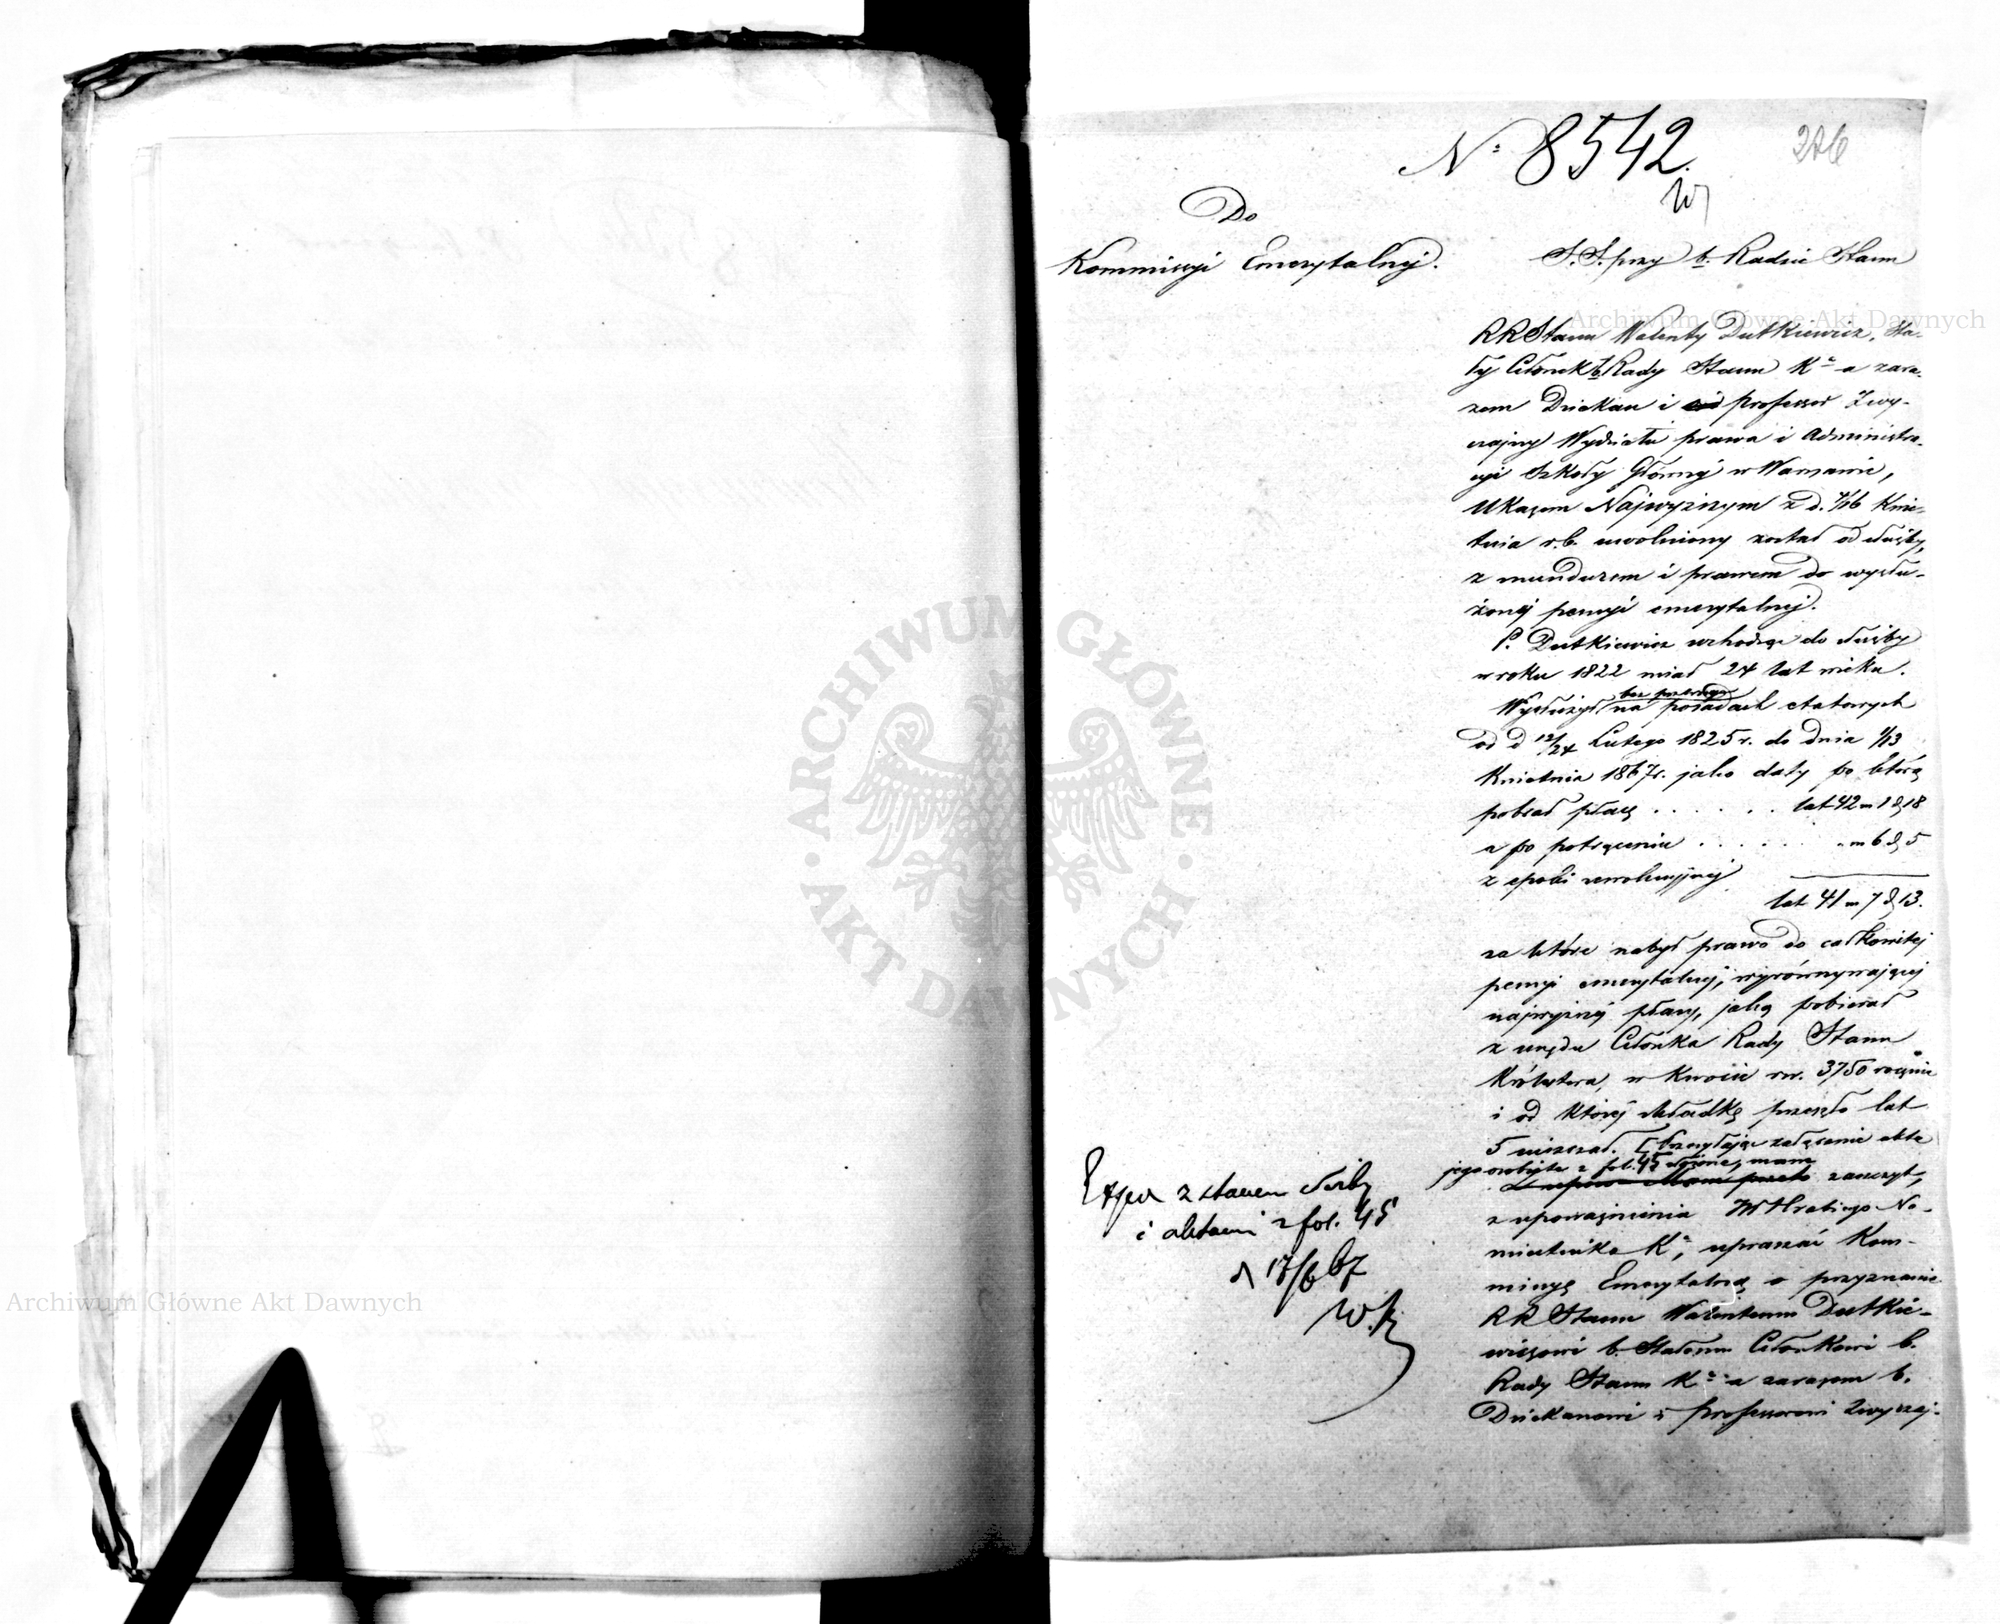 Nº 8542.
276
Do
Kommissyi Emerytalnej.
S. S. przy b. Radzie Stanu
RRStanu Walenty Dutkiewicz, Sta-
ły Członek b. Rady Stanu Kª a zara-
zem Dziekan i professor Zwy-
czajny Wydziału prawa i Administra-
cyi Szkoły Głównej w Warszawie,
Ukazem Najwyższym z d. 4/16 Kwie-
tnia r.b. uwolniony został od służby,
z mundurem i prawem do wysłu-
żonej pensyi emerytalnej.
P. Dutkiewicz wchodząc do służby
w roku 1822 miał 24 lat wieku.
bez przerwy
Wysłużył na posadach etatowych
od d 12/24 Lutego 1825 r. do dnia 1/13
Kwietnia 1867 r. jako daty po którą
pobrał płacę . . . . . . lat 42 m 1 d 18
a po potrąceniu . . . . . . „ m 6 d 5
z epoki rewolucyjnej
lat 41 m 7 d 13.
za które nabył prawo do całkowitej
pensyi emerytalnej, wyrównywającej
najwyższej płacy, jaką pobierał
z urzędu Członka Rady Stanu
Królestwa, w kwocie rsr. 3750 rocznie
i od której składkę przeszło lat
5 uiszczał. Przesyłając załączenie akta
jego osobiste z fol. 45 złożone, mam
zaszczyt,
z upoważnienia JW Hrabiego Na-
miestnika Kª, upraszać Kom-
missyę Emerytalną o przyznanie
RRStanu Walentemu Dutkie-
wiczowi b. Stałemu Członkowi b.
Rady Stanu Kª a zarazem b.
Dziekanowi i professorowi Zwyczaj-
Exped z stanem służby
i aktami z fol. 45
d 17/6 67
W.
Archiwum Główne Akt Dawnych
Archiwum Główne Akt Dawnych
ARCHIWUM GŁÓWNE AKT DAWNYCH